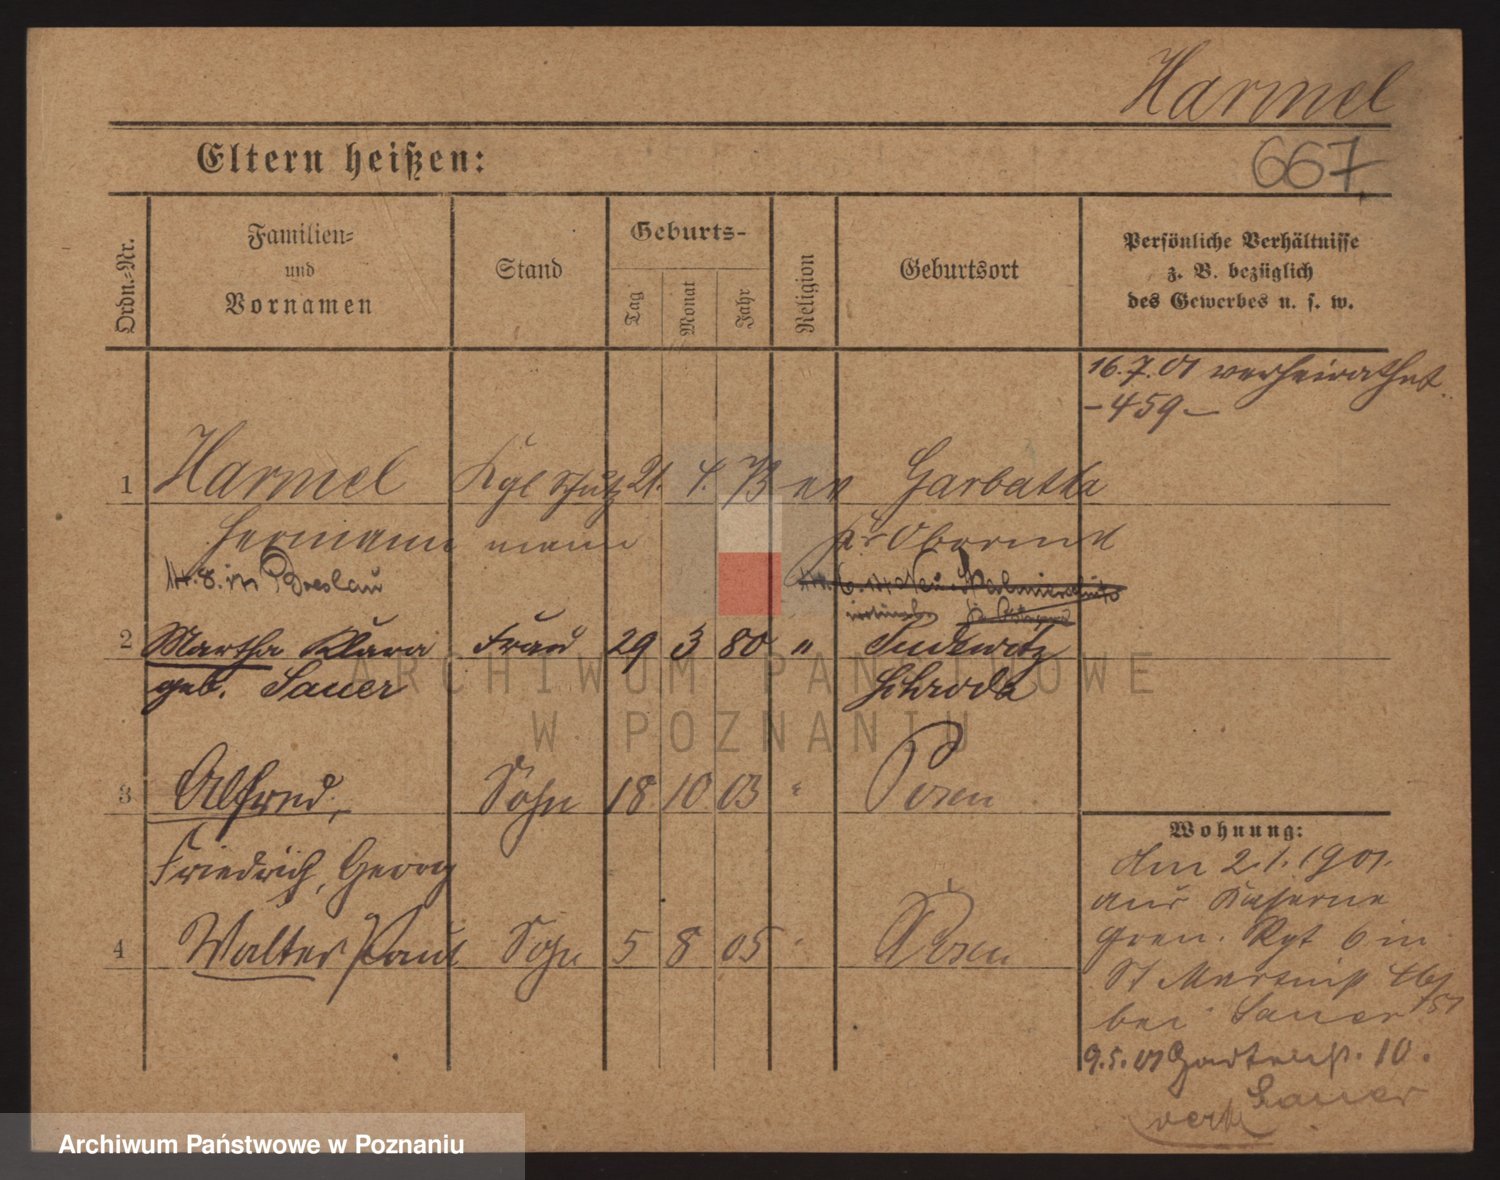 Harmel
Eltern heißen:
667
Ordn.-Nr.
Familien-
und
Vornamen
Stand
Geburts-
Tag
Monat
Jahr
Religion
Geburtsort
Persönliche Verhältnisse
z. B. bezüglich
des Gewerbes u. s. w.
16.7.01 verheirathet.
-459-
1 Harmel Kgl Schutz 21. 4. 73 ev Garbatka
Hermann mann Kr Obornik
in Breslau
2 Martha Klara Frau 29 3 80 "
geb. Sauer Schroda
3 Alfred, Sohn 18 10 03 " Posen
Friedrich, Georg
4 Walter Paul Sohn 5 8 05 Posen
Wohnung:
Am 2.1.1901.
aus Kaserne
Gren. Rgt 6 in
St Martinst
bei Sauer
9.5.01 Gartenst. 10.
Sauer
ARCHIWUM PAŃSTWOWE
W POZNANIU
Archiwum Państwowe w Poznaniu